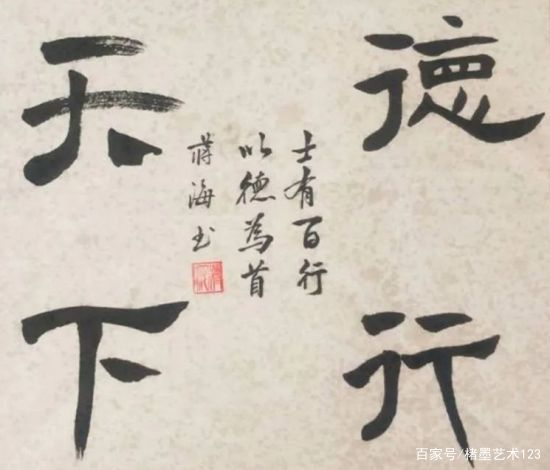 德行
天下
士有百行
以德為首
蒋海书
百家号/楮墨艺术123